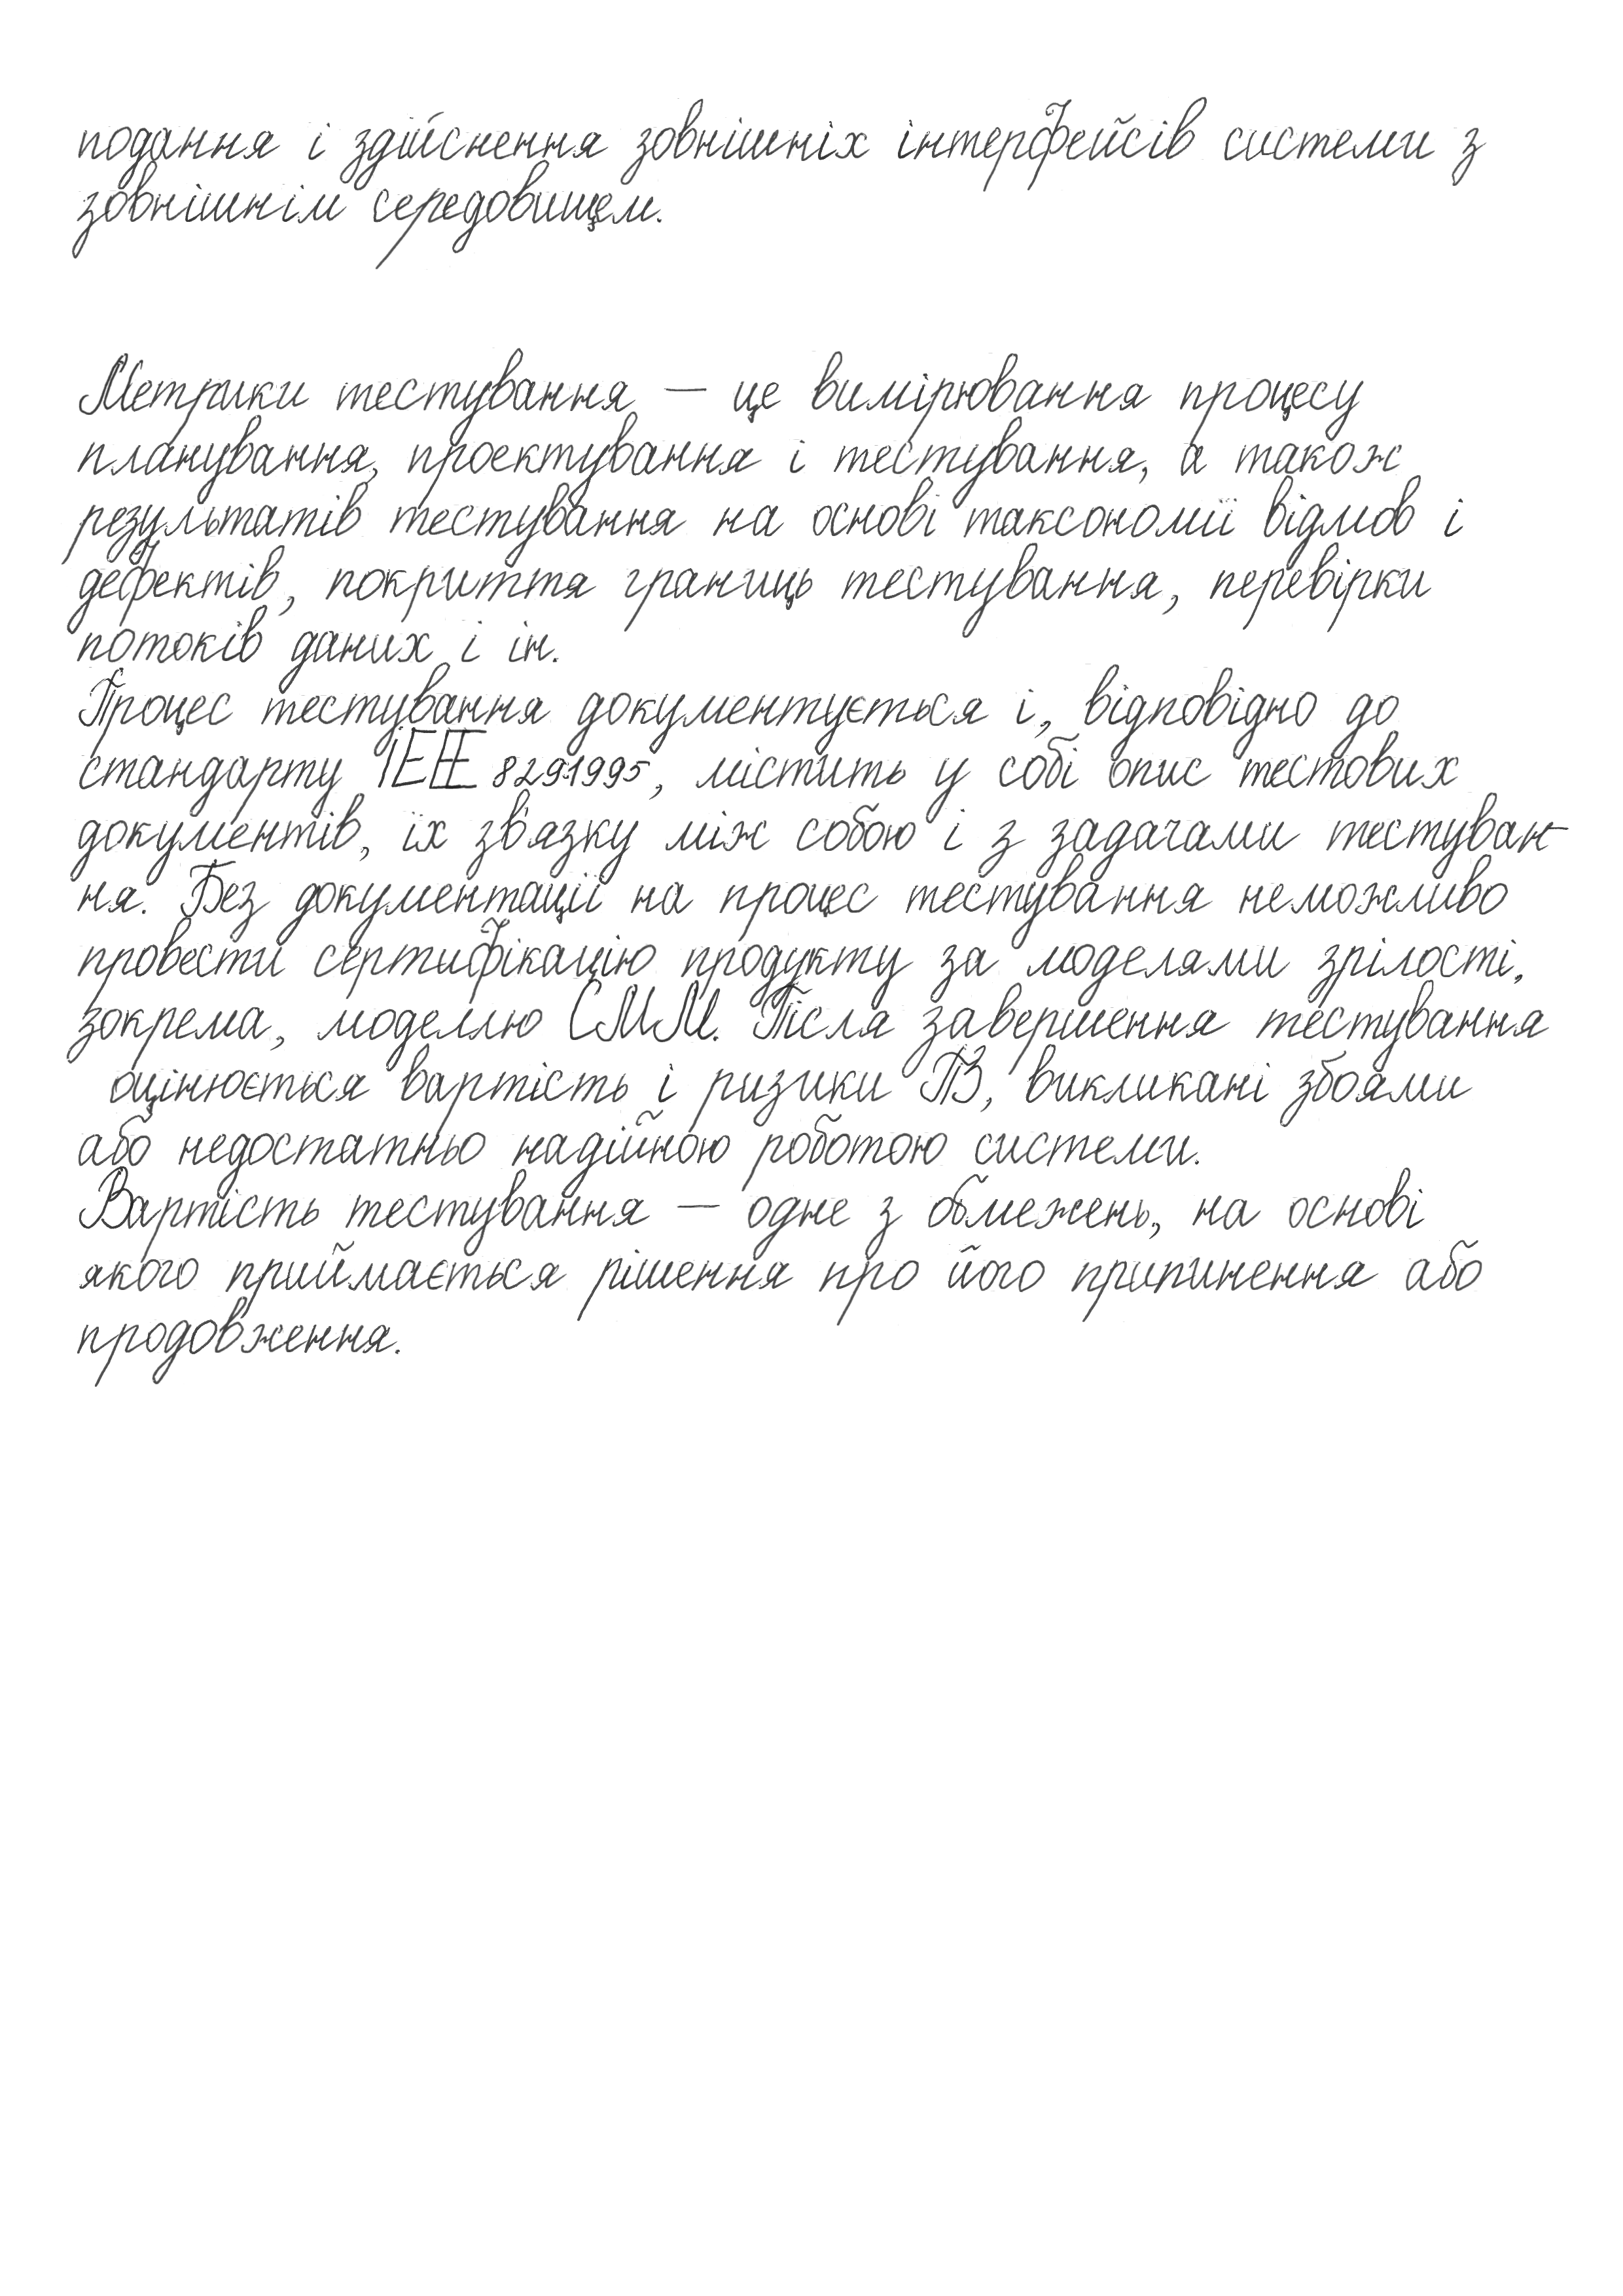 подання і здійснення зовнішніх інтерфейсів системи з
зовнішнім середовищем.
Метрики тестування — це вимірювання процесу
планування, проектування і тестування, а також
результатів тестування на основі таксономії відмов і
дефектів, покриття границь тестування, перевірки
потоків даних і ін.
Процес тестування документується і, відповідно до
стандарту ІЕЕЕ 829.1995, містить у собі опис тестових
документів, їх зв'язку між собою і з задачами тестуван-
ня. Без документації на процес тестування неможливо
провести сертифікацію продукту за моделями зрілості,
зокрема, моделлю СММ. Після завершення тестування
оцінюється вартість і ризики ПЗ, викликані збоями
або недостатньо надійною роботою системи.
Вартість тестування — одне з обмежень, на основі
якого приймається рішення про його припинення або
продовження.